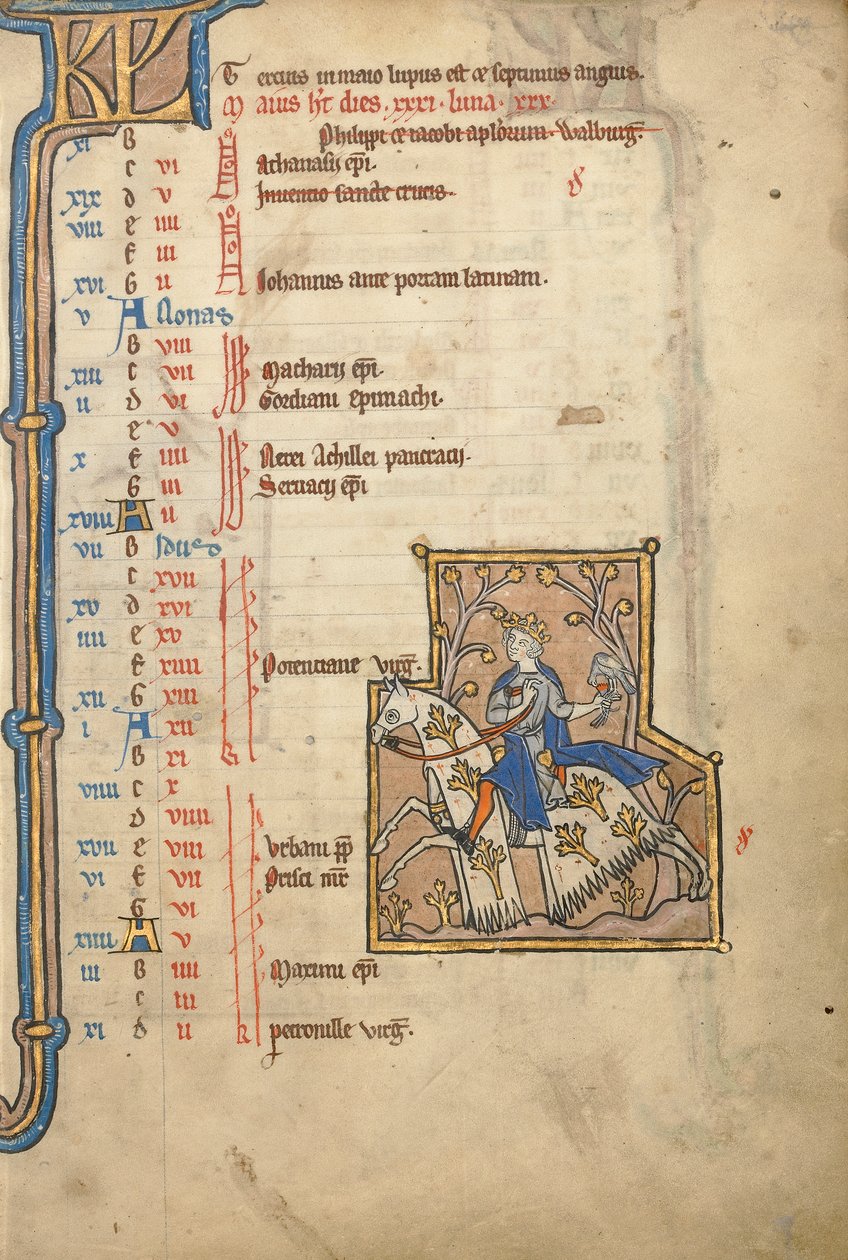 KL Tercius in maio lupus est et septimus anguis.
Maius ht dies .xxxi. luna .xxx.
xi B Philippi et iacobi aplorum. Walburg.
c vi Athanasii epi.
xix d v Inuentio sancte crucis.
viii e iiii
f iii
xvi G ii Iohannis ante portam latinam.
v A Nonas
B viii
xiii c vii Macharii epi.
ii d vi Gordiani epimachi.
e v
x f iiii Nerei Achillei pancracij.
G iii Seruacij epi
xviii A ii
vii B Idus
c xvii
xv d xvi
iiii e xv
f xiiii Potentiane virg.
xii G xiii
i A xii
B xi
viiii c x
d viiii
xvii e viii Vrbani pp
vi f vii Prisci mr
G vi
xiiii A v
iii B iiii Maximi epi
c iii
xi d ii petronille virg.